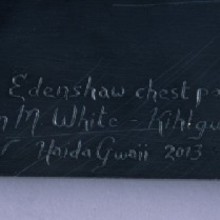 Edenshaw chest pa
n M White - Kihlgu
Haida Gwaii 2013